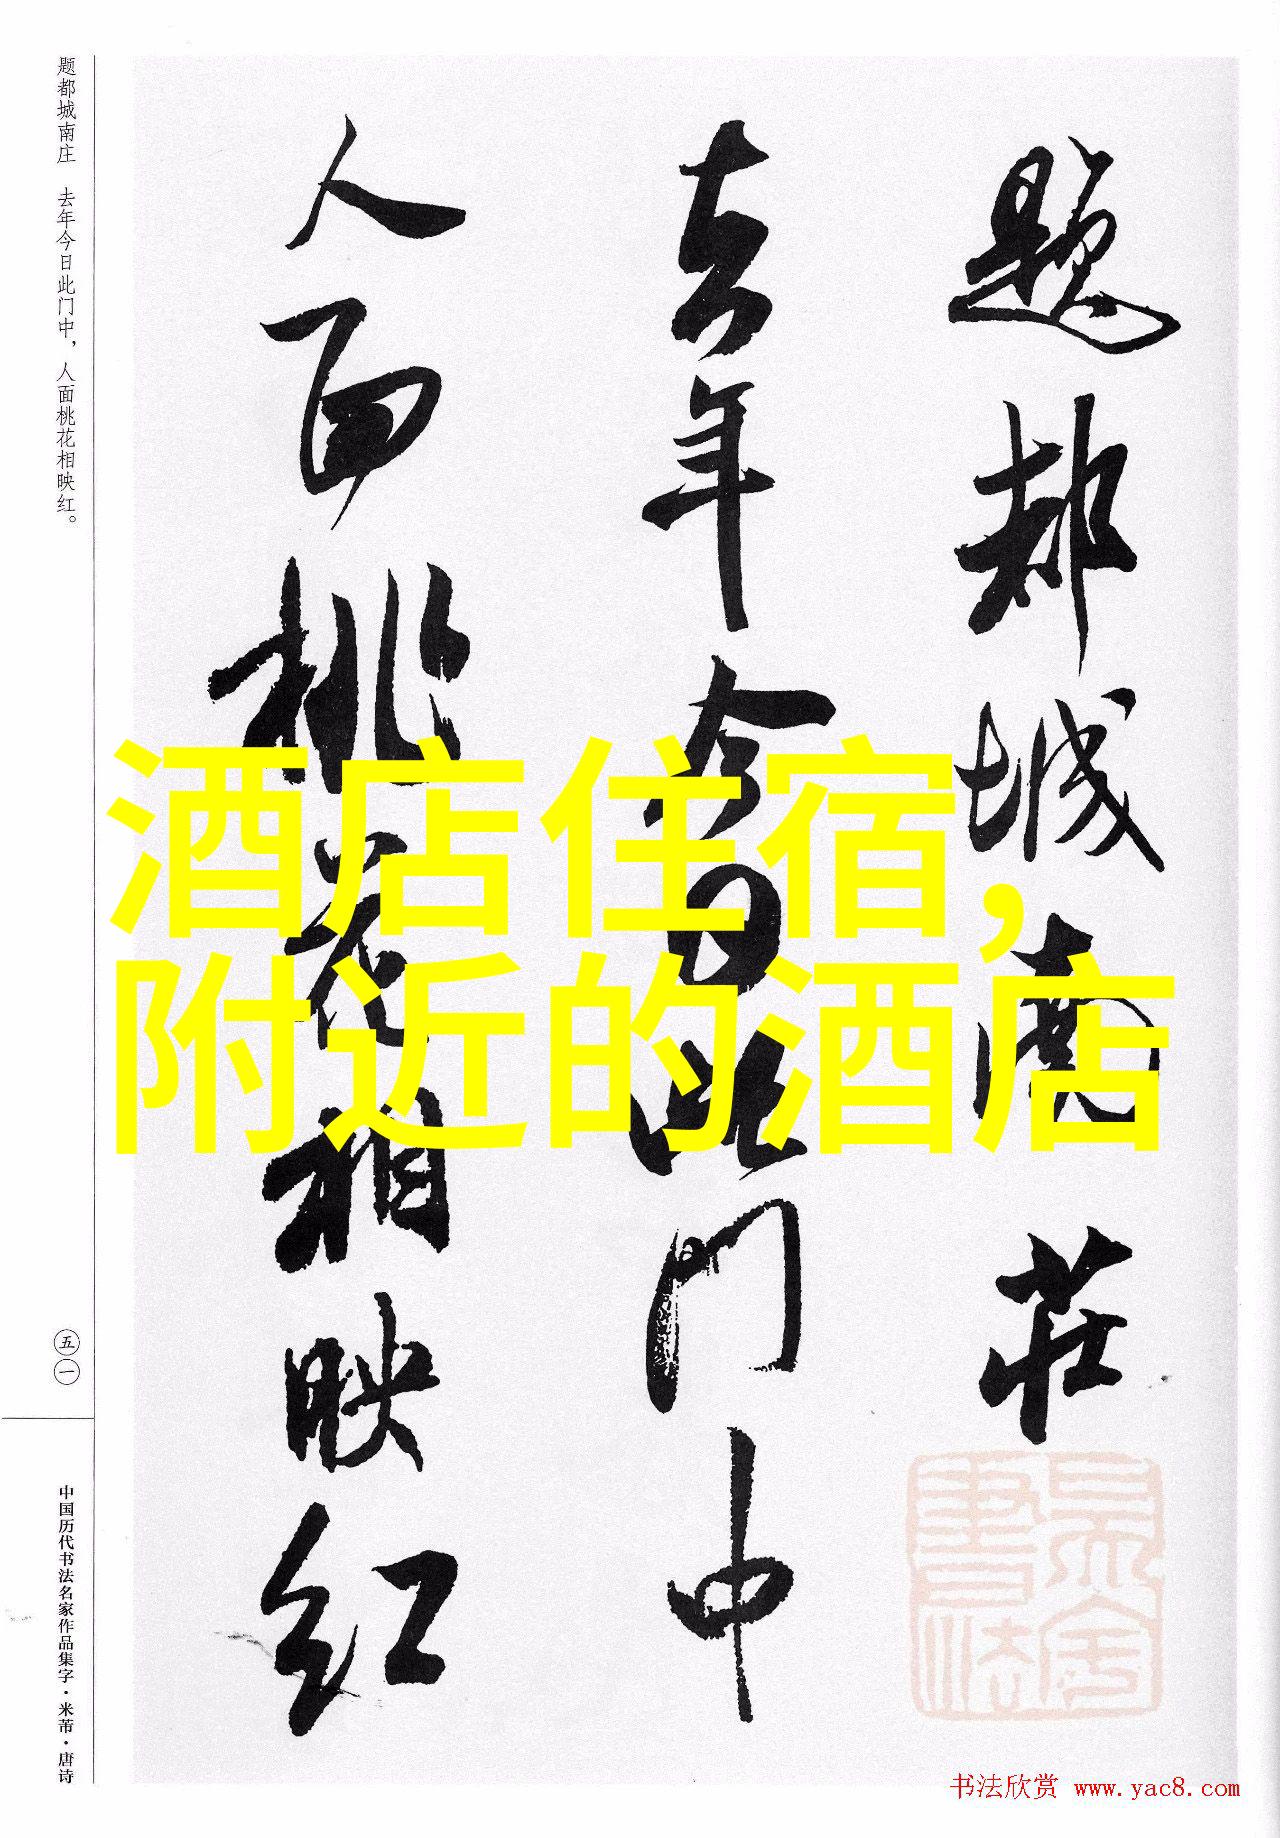 题都城南庄　去年今日此门中，人面桃花相映红。
五一
中国历代书法名家作品集字·米芾·唐诗
题都城南莊
去年今日此门中
人面桃花相映红
酒店住宿，
附近的酒店
书法欣赏 www.yac8.com